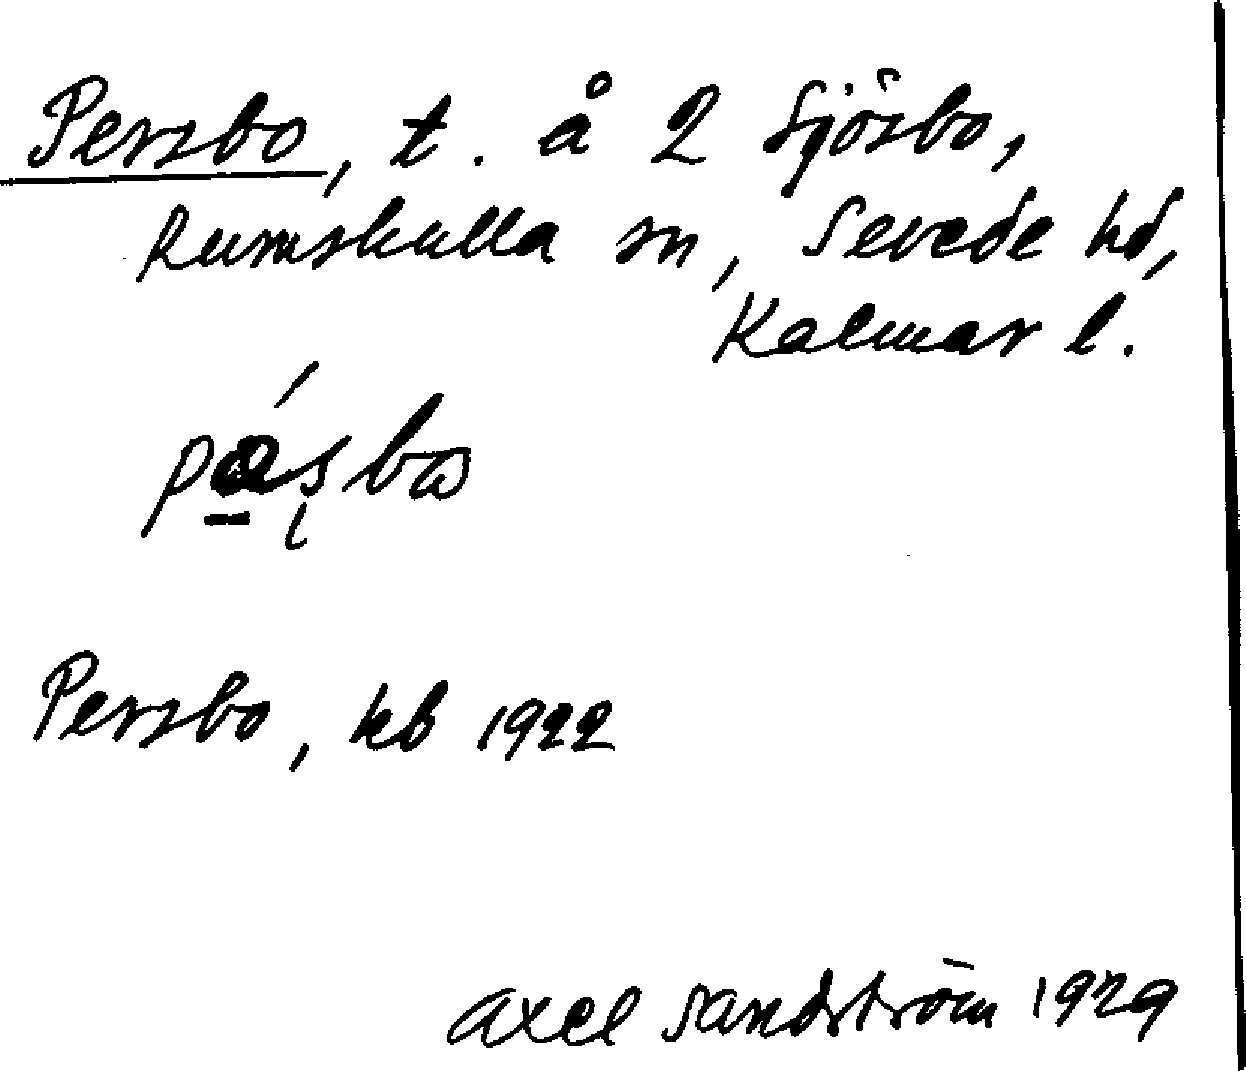 Persbo, t. å 2 Sjösbo,
Rumskulla sn, Sevede hd,
Kalmar l.
Persbo, kb 1922
Axel Sandström 1929